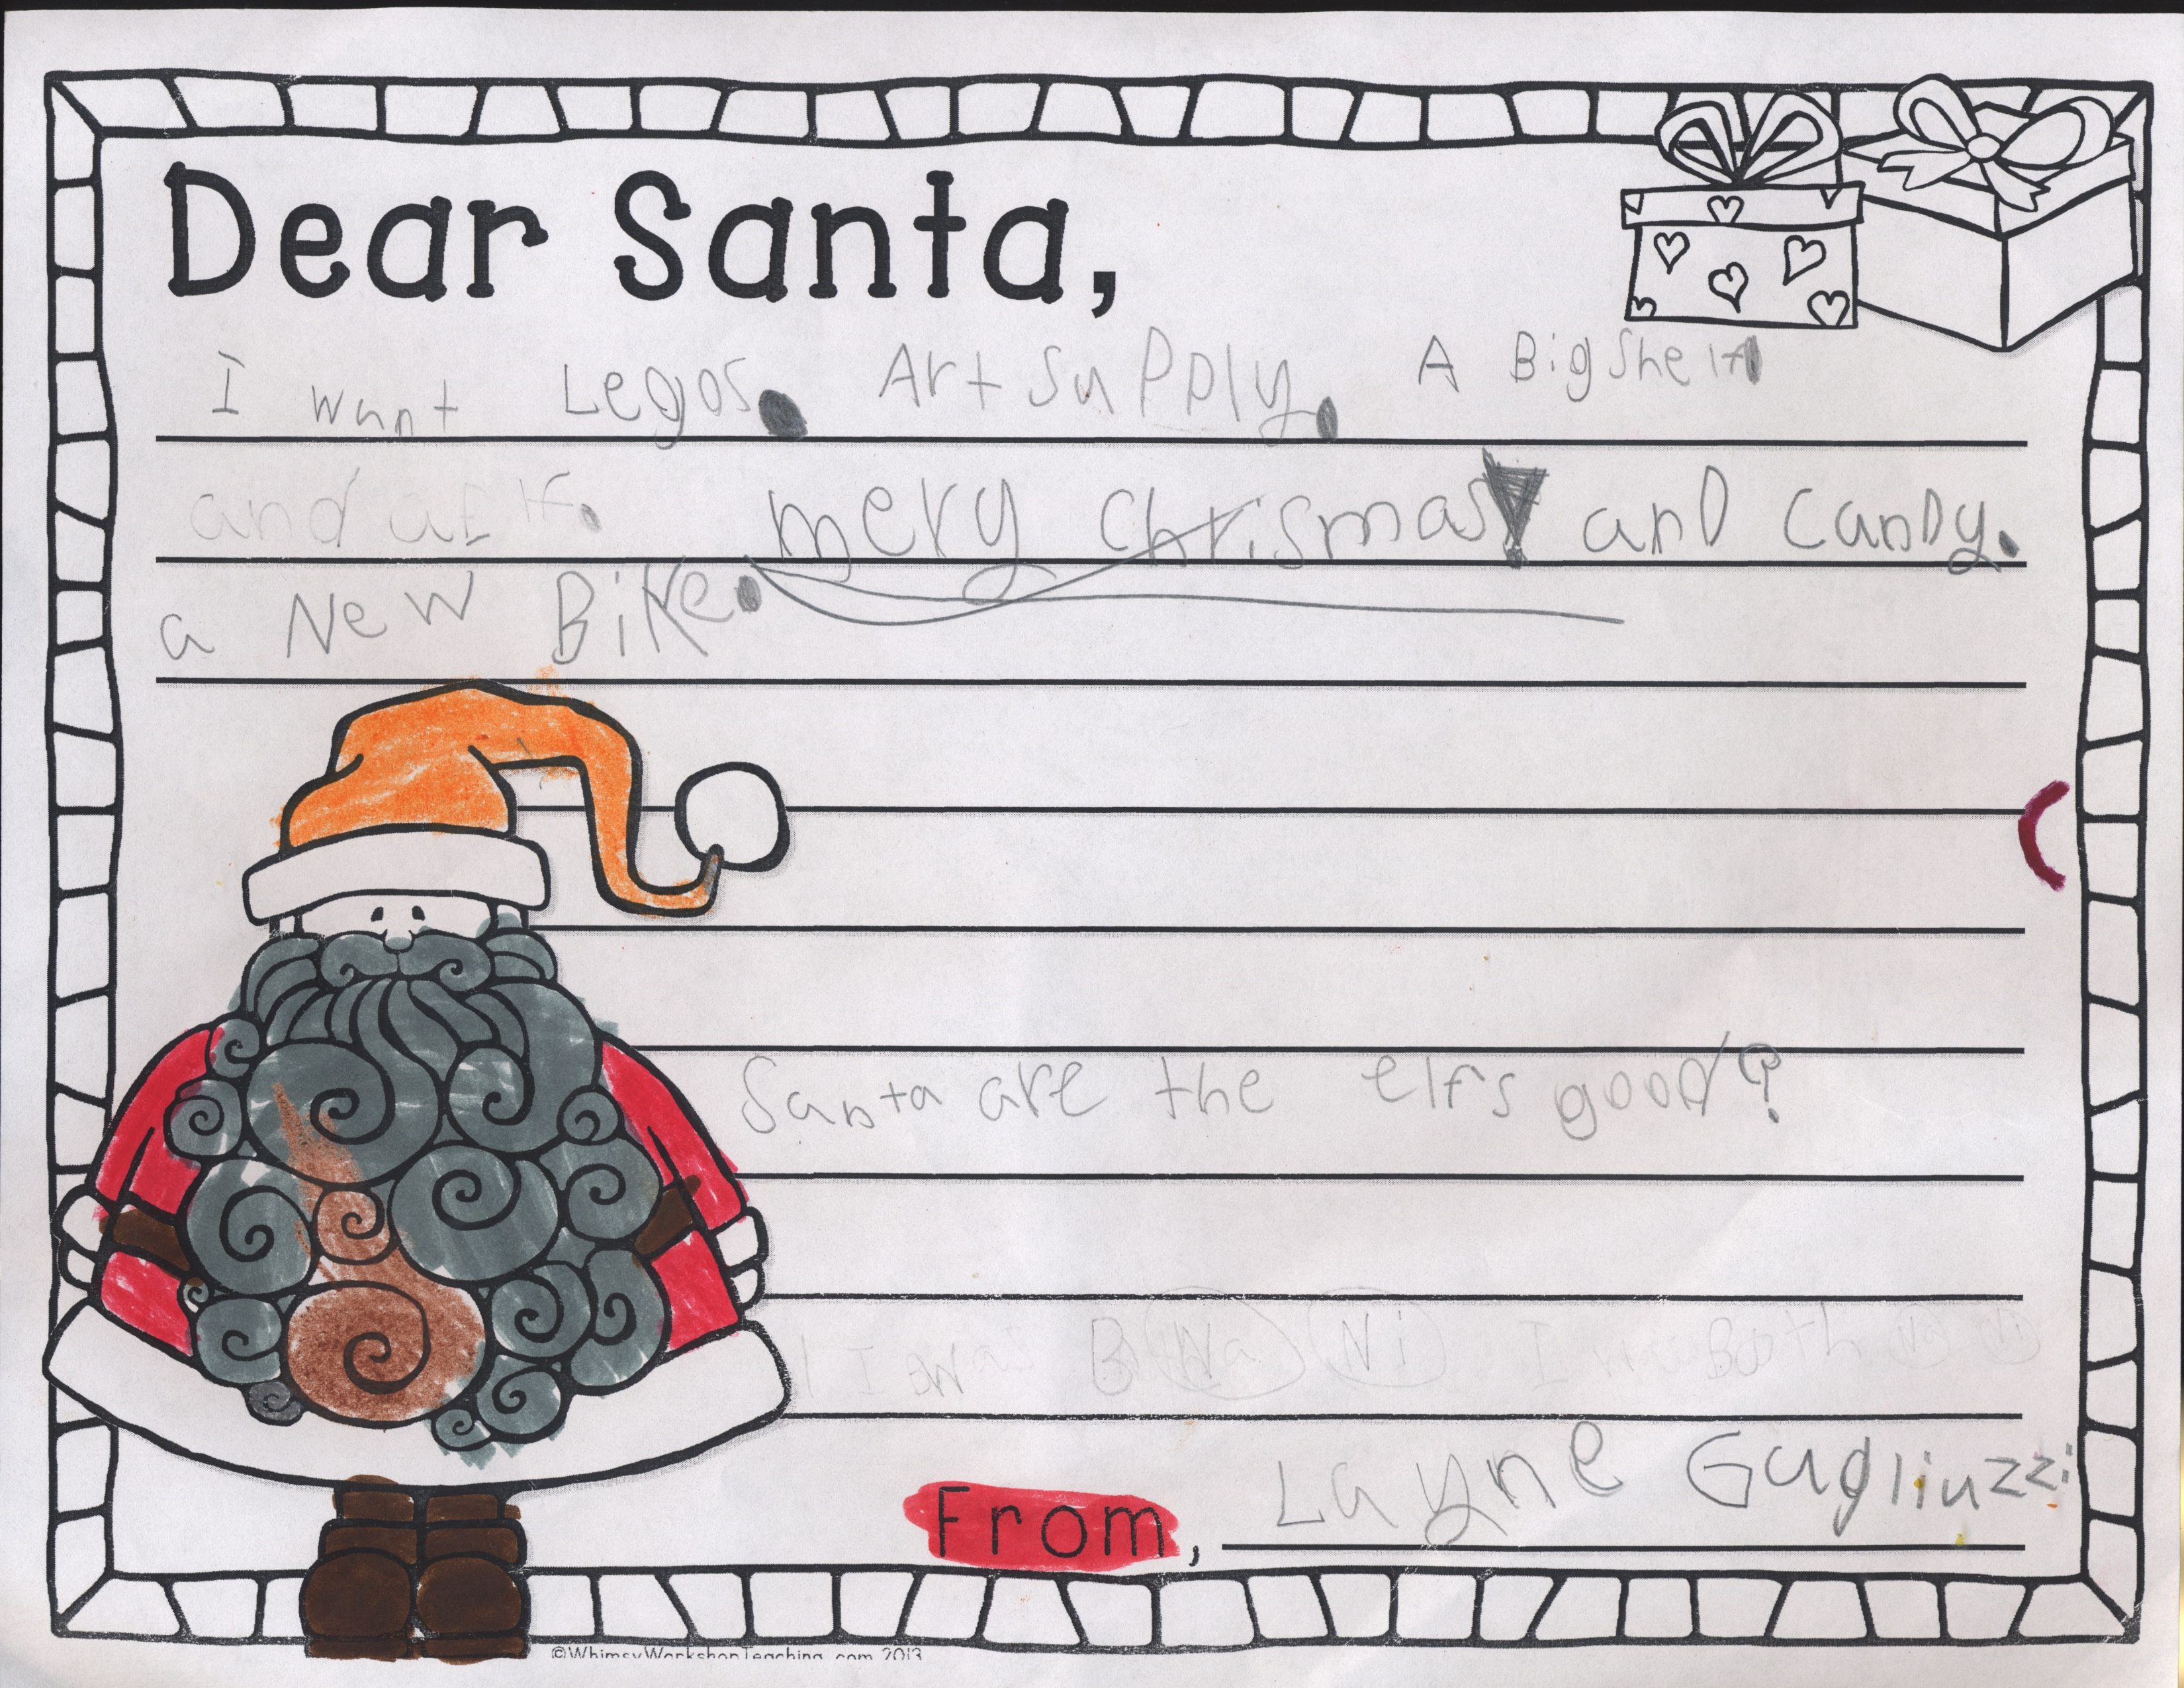 Dear Santa,
I want Legos. Art Supply. A Big Shelf
and a Elf. mery Chrismas! and Candy.
a New BiKe.
Santa are the elfs good?
I was B Na Ni I Both
From, Layne Gugliuzzi
©WhimsyWorkshopTeaching.com 2013